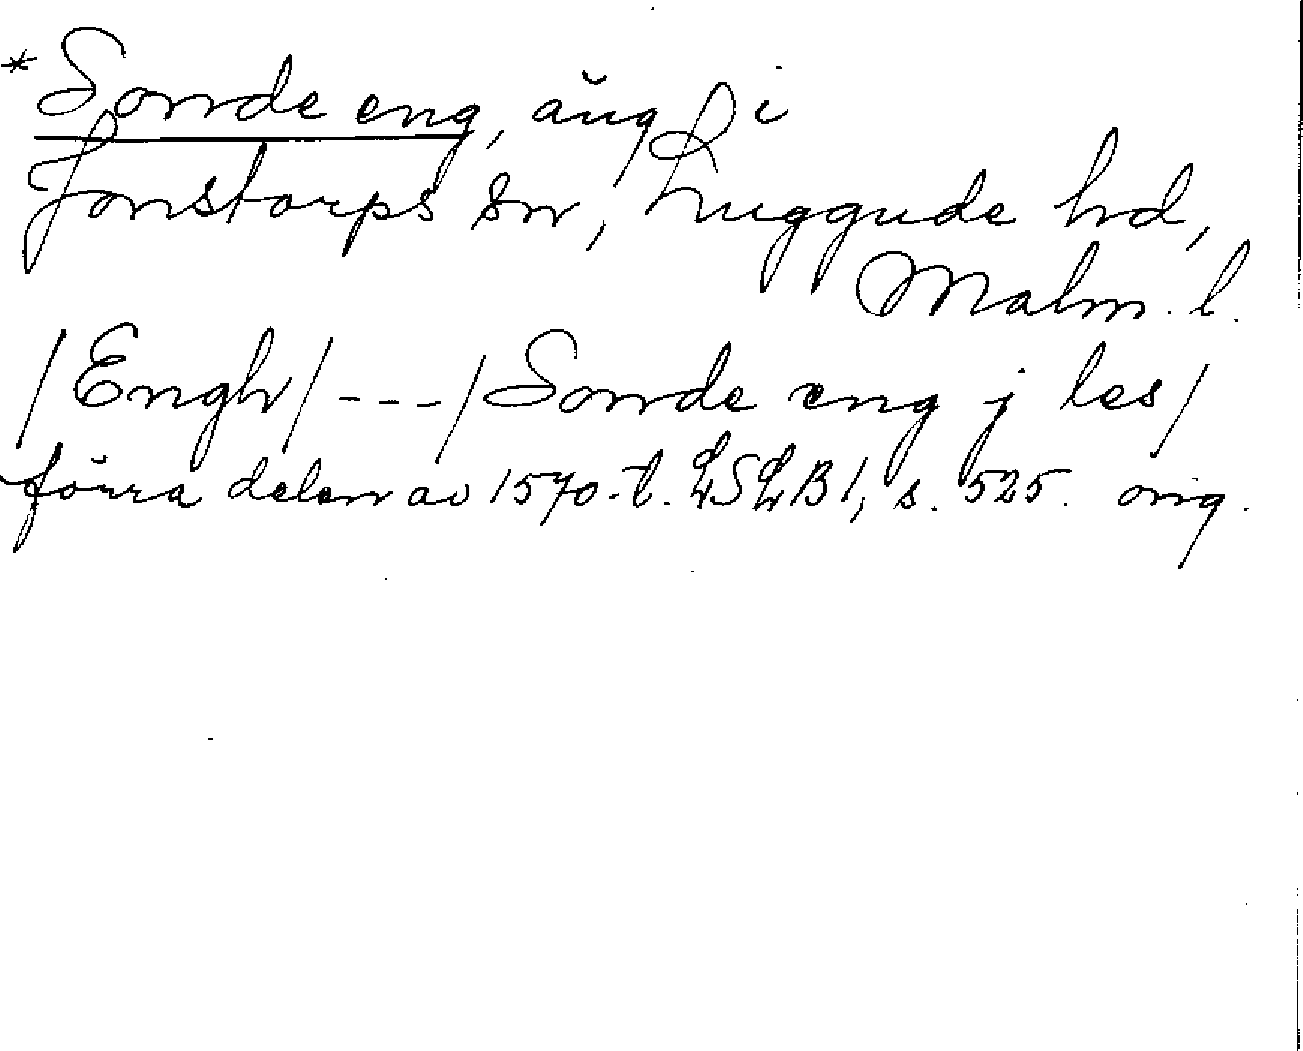 *Sonde eng, äng i
Jonstorps sn, Luggude hd,
Malm. l.
/Engh/ --- /Sonde eng j les/
förra delen av 1570-t. LSLB1, s. 525. orig.